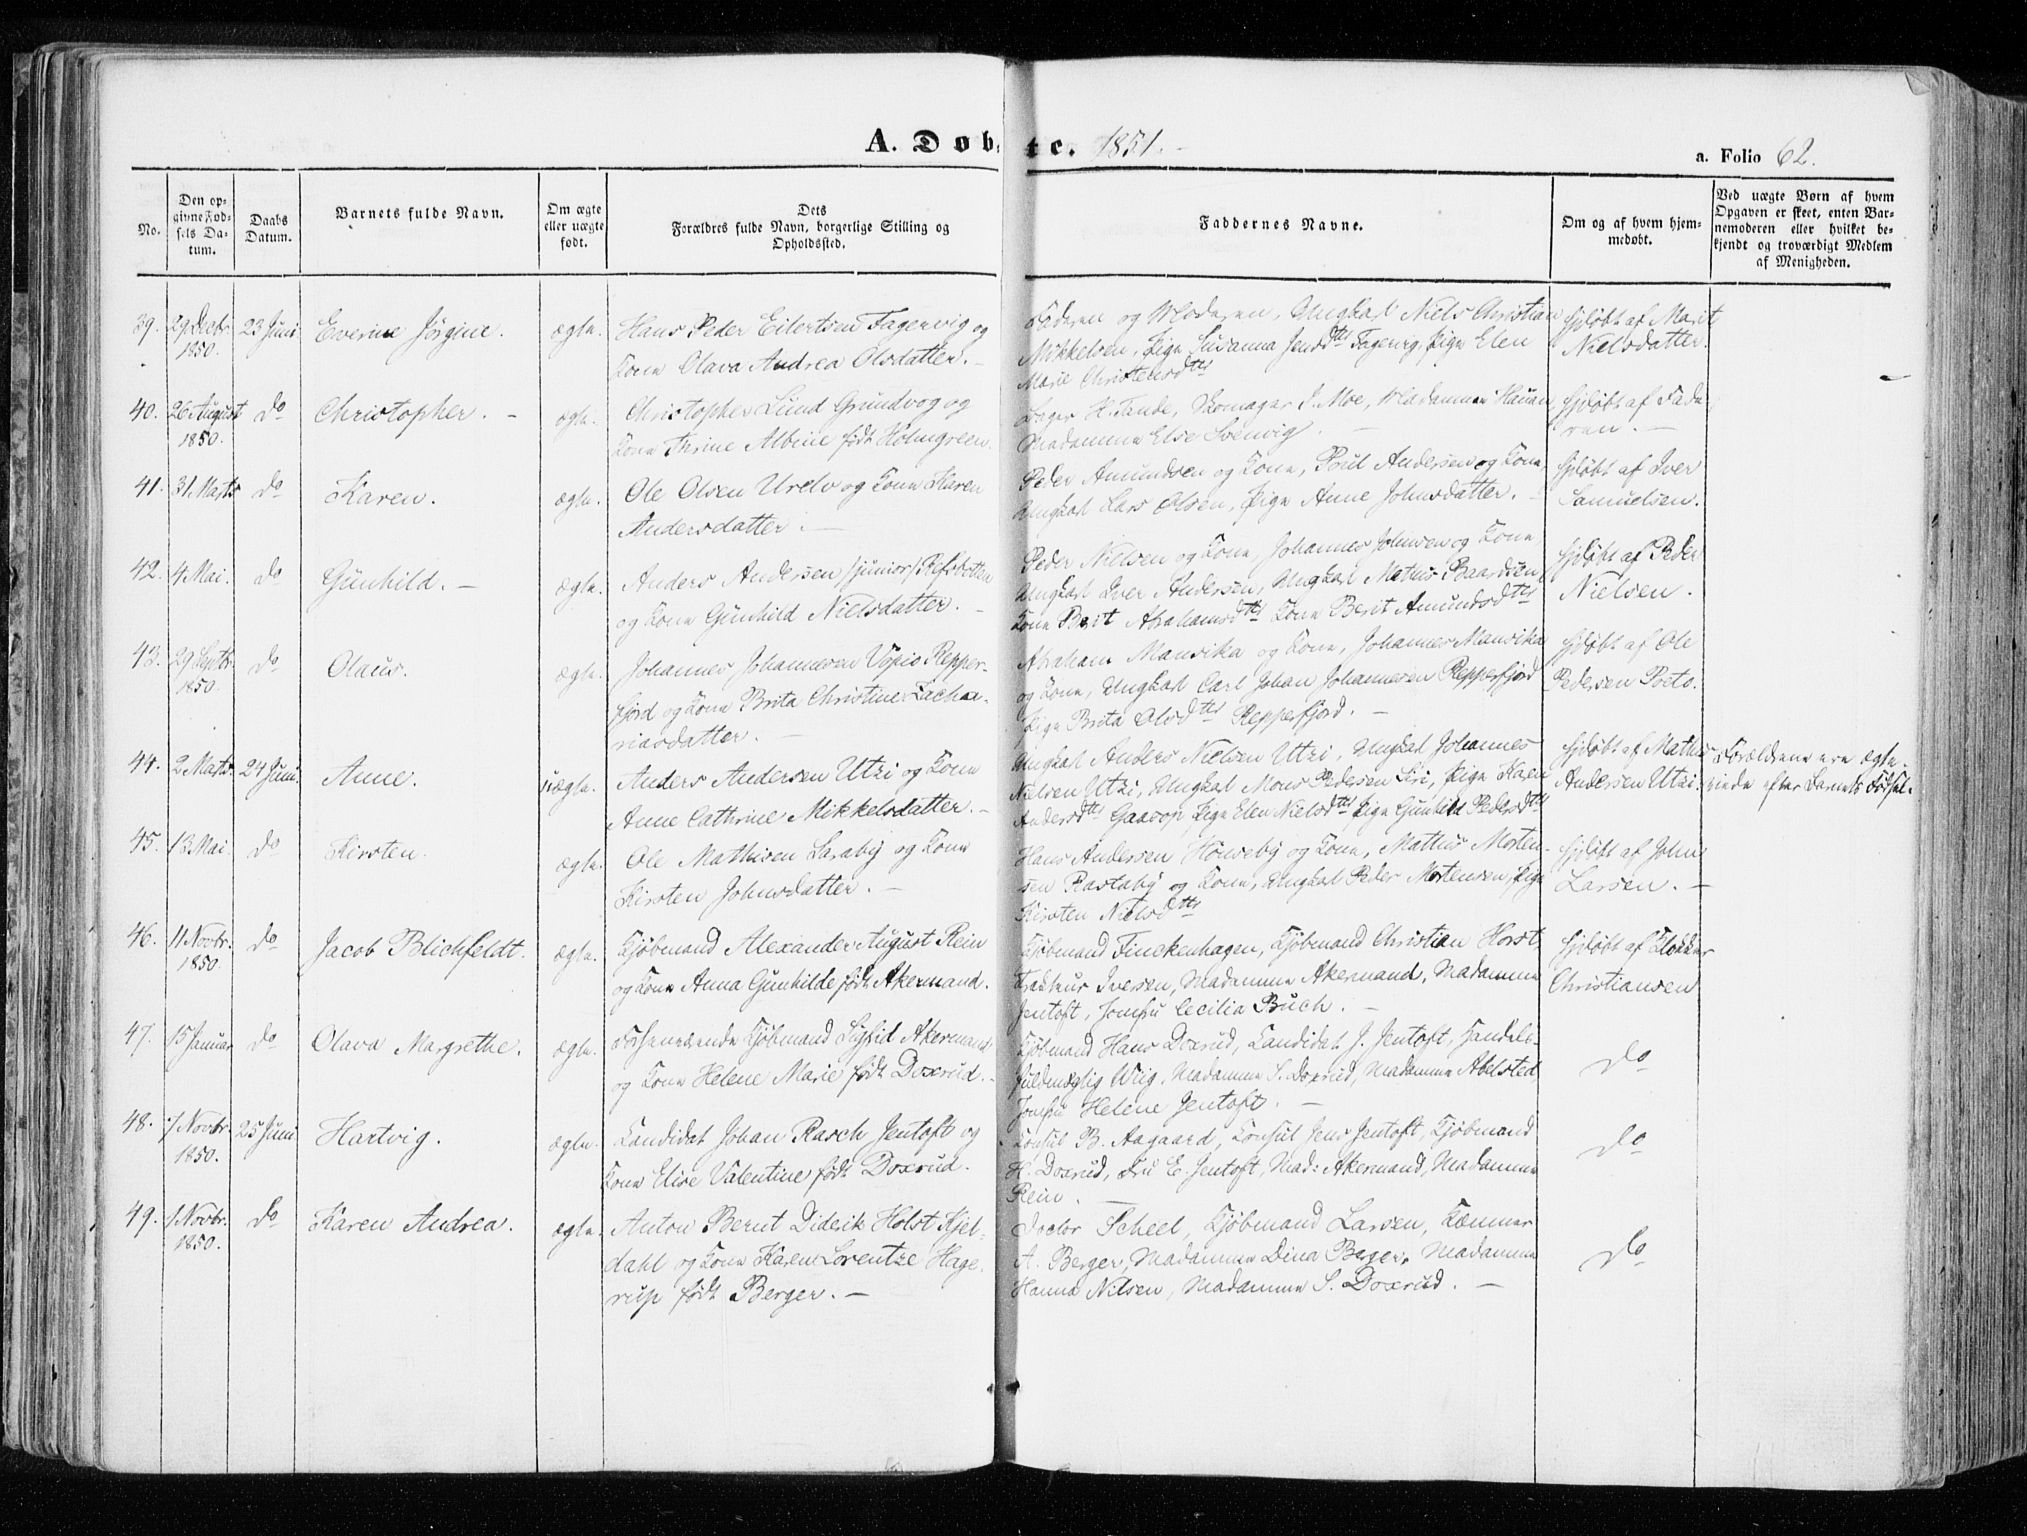 A. Døbte. 1851.
a. Folio 62.
No.
Den op-
givne Fød-
sels Da-
tum.
Daabs
Datum.
Barnets fulde Navn.
Om ægte
eller uægte
født.
Dets
Forældres fulde Navn, borgerlige Stilling og
Opholdssted.
Faddernes Navne.
Om og af hvem hjem-
medøbt.
Ved uægte Børn af hvem
Opgaven er skeet, enten Bar-
nemoderen eller hvilket be-
kjendt og troværdigt Medlem
af Menigheden.
39. 29 Decbr. 1850. 23 Juni. Everine Jörgine. ægte.
Hans Peder Eilertsen Fagervig og
Kone Olava Andrea Olsdatter. -
Faderen og Moderen, Ungkarl Niels Christian
Mikkelsen, Pige Susanna Jensdtr Fagervig, Pige Elen
Marie Christensdtr
hjdøbt af Marit
Nielsdatter.
40. 26 August 1850. do Christopher. - ægte.
Christopher Lund Grundvog og
Kone Thrine Albine født Holmgreen.
Bager H. Tande, Skomager J. Moe, Madamme Hauan,
Madamme Else Svenvig. -
hjdøbt af Fade-
ren. -
41. 31 Marts do Karen. ægte.
Ole Olsen Urelv og Kone Karen
Andersdatter. -
Peder Amundsen og Kone, Poul Andersen og Kone,
Ungkarl Lars Olsen, Pige Anne Johnsdatter. -
hjdøbt af Iver
Samuelsen.
42. 4 Mai. do Gunhild. - ægte.
Anders Andersen /junior/ Refsbotten
og Kone Gunhild Nielsdatter. -
Peder Nielsen og Kone, Johannes Johnsen og Kone
Ungkarl Iver Andersen, Ungkarl Mathis Baardsen,
Kone Berit Abrahamsdtr Kone Berit Amundsdtr
hjdøbt af Peder
Nielsen.
43. 29 Septbr. 1850. do Olaus. ægte.
Johannes Johannesen Vopio Repper-
fjord og Kone Brita Christine Zacha-
riasdatter. -
Abraham Mansika og Kone, Johannes Mansika
og Kone, Ungkarl Carl Johan Johannesen Repperfjord
Pige Brita Olsdtr Repperfjord. -
hjdøbt af Ole
Pedersen Porto.
44. 2 Marts. 24 Juni. Anne. uægte.
Anders Andersen Utzi og Kone
Anne Cathrine Mikkelsdatter. -
Ungkarl Anders Nielsen Utzi, Ungkarl Johannes
Nielsen Utzi, Ungkarl Mons Pedersen Siri, Pige Karen
Andersdtr Gaavop, Pige Elen Nielsdtr Pige Gunhild Pedersdtr
hjdøbt af Mathis
Andersen Utzi.
Forældrene ere ægte-
viede efter Barnets Fødsel.
45. 13 Mai do Kirsten. ægte.
Ole Mathisen Saraby og Kone
Kirsten Johnsdatter. -
Hans Andersen Hönseby og Kone, Mathis Morten-
sen Rastaby og Kone, Ungkarl Peder Mortensen, Pige
Kirsten Nielsdtr
hjdøbt af John
Larsen. -
46. 11 Novbr. 1850. do Jacob Blichfeldt. ægte.
Kjøbmand Alexander August Rein
og Kone Anna Gunhilde født Akermand.
Kjøbmand Finckenhagen, Kjøbmand Christian Horst,
Tracteur Iversen, Madamme Akermand, Madamme
Jentoft, Jomfru Cecilia Buch. -
hjdøbt af Klokker
Christiansen
47. 15 Januar do Olava Margrethe. ægte.
Forhenværende Kjøbmand Sigfrid Akermand
og Kone Helene Marie født Doxrud. -
Kjøbmand Hans Doxrud, Candidat J. Jentoft, Handels-
fuldmægtig Wiig, Madamme S. Doxrud, Madamme Abelsted
Jomfru Helene Jentoft. -
do
48. 7 Novbr. 1850. 25 Juni Hartvig. ægte.
Candidat Johan Rasch Jentoft og
Kone Elise Valentine født Doxrud.
Konsul B. Aagaard, Konsul Jens Jentoft, Kjøbmand
H. Doxrud, Fru E. Jentoft, Mad: Akermand, Madamme
Rein. -
do
49. 1 Novbr. 1850. do Karen Andrea. ægte.
Anton Bernt Diderik Holst Kjel-
dahl og Kone Karen Lorentze Hage-
rup født Berger. -
Doctor Scheel, Kjøbmand Larsen, Kæmner
A. Berger, Madamme Dina Berger, Madamme
Hanna Nilsen, Madamme S. Doxrud. -
do